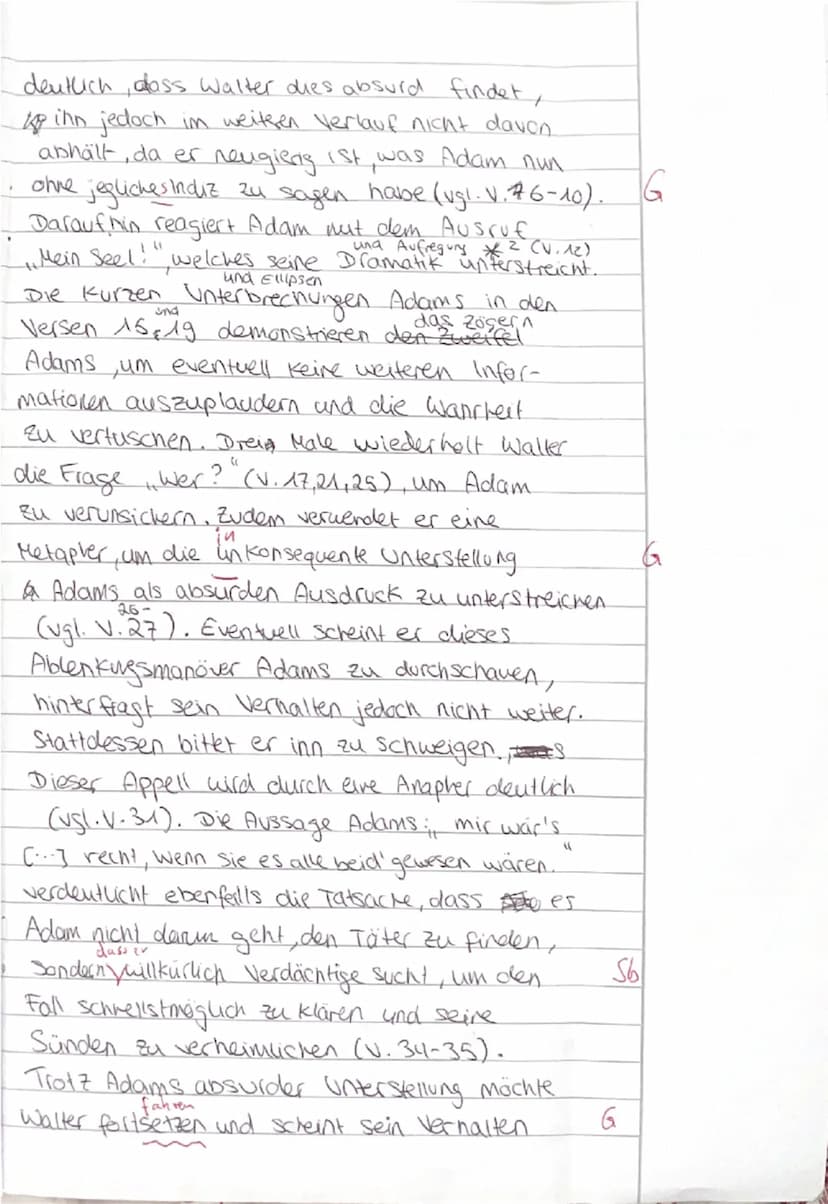 deutlich, dass Walter dies absurd findet,
ihn jedoch im weiteren Verlauf nicht davon
abhält, da er neugierig ist, was Adam nun
ohne jegliches Indiz zu sagen habe (vgl. V. 6-10). G
Daraufhin reagiert Adam mit dem Ausruf
und Aufregung * 2 (V. 12)
„Mein Seel!", welches seine Dramatik unterstreicht.
und Ellipsen
Die kurzen Unterbrechungen Adams in den
und das Zögern
Versen 15, 19 demonstrieren den Zweifel
Adams, um eventuell keine weiteren Infor-
mationen auszuplaudern und die Wahrheit
zu vertuschen. Drei Male wiederholt Walter
die Frage „Wer?" (V. 17,21,25), um Adam
zu verunsichern. Zudem verwendet er eine
in
Metapher, um die unkonsequente Unterstellung G
Adams als absurden Ausdruck zu unterstreichen
26-
(vgl. V. 27). Eventuell scheint er dieses
Ablenkungsmanöver Adams zu durchschauen,
hinterfragt sein Verhalten jedoch nicht weiter.
Stattdessen bittet er ihn zu schweigen.
Dieser Appell wird durch eine Anapher deutlich
(vgl. V. 31). Die Aussage Adams: „mir wär's
[...] recht, wenn sie es alle beid' gewesen wären."
verdeutlicht ebenfalls die Tatsache, dass es
Adam nicht darum geht, den Täter zu finden,
dass er
sondern willkürlich Verdächtige sucht, um den Sb
Fall schnellstmöglich zu klären und seine
Sünden zu verheimlichen (V. 34-35).
Trotz Adams absurder Unterstellung möchte
fahren
Walter fortsetzen und scheint sein Verhalten G